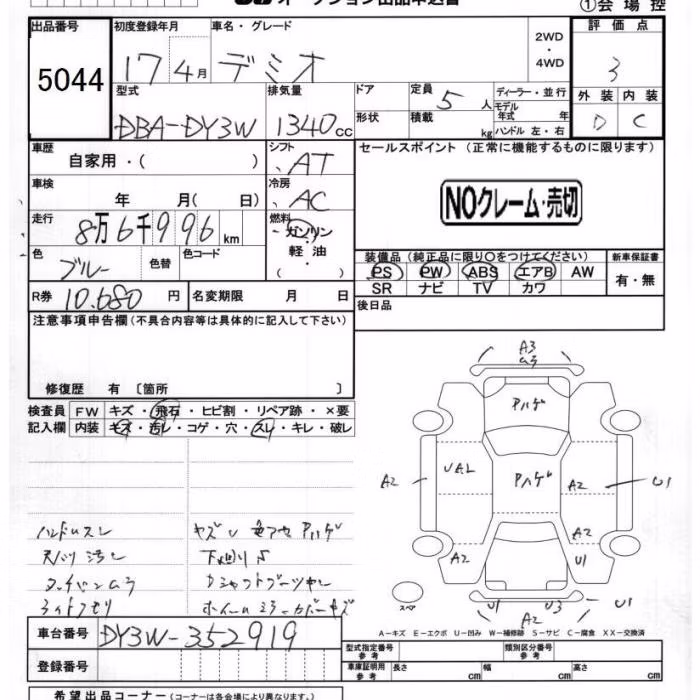 オークション出品申込書
①会場控
出品番号 5044
初度登録年月 17年4月
車名・グレード デミオ
2WD・4WD
評価点 3
外装 D 内装 C
型式 DBA-DY3W
排気量 1340cc
ドア 形状
定員 5人
積載 kg
ディーラー・並行
モデル年式 年
ハンドル 左・右
車歴 自家用・( )
シフト AT
車検 年 月( 日)
冷房 AC
走行 8万6千996km
燃料 ガソリン・軽油 ( ・ )
色 ブルー 色替 色コード
R券 10.680円
名変期限 月 日
セールスポイント (正常に機能するものに限ります)
NOクレーム・売切
装備品 (純正品に限り○をつけてください)
PS PW ABS エアB AW
SR ナビ TV カワ
新車保証書 有・無
後日品
注意事項申告欄 (不具合内容等は具体的に記入して下さい)
修復歴 有 〔箇所 〕
検査員記入欄
FW キズ・飛石・ヒビ割・リペア跡・×要
内装 キズ・汚レ・コゲ・穴・スレ・キレ・破レ
ハンドルスレ
下廻りサ
車台番号 DY3W-352919
登録番号
希望出品コーナー (コーナーは各会場により異なります。)
A3
ムラ
Pハゲ
UAL
Pハゲ
A2
A2
U1
A2
A2
U1
スペア
U1
U3
U1
A2
A-キズ E-エクボ U-凹み W-補修跡 S-サビ C-腐食 XX-交換済
型式指定番号 参考
類別区分番号 参考
車庫証明用 参考 長さ cm 幅 cm 高さ cm